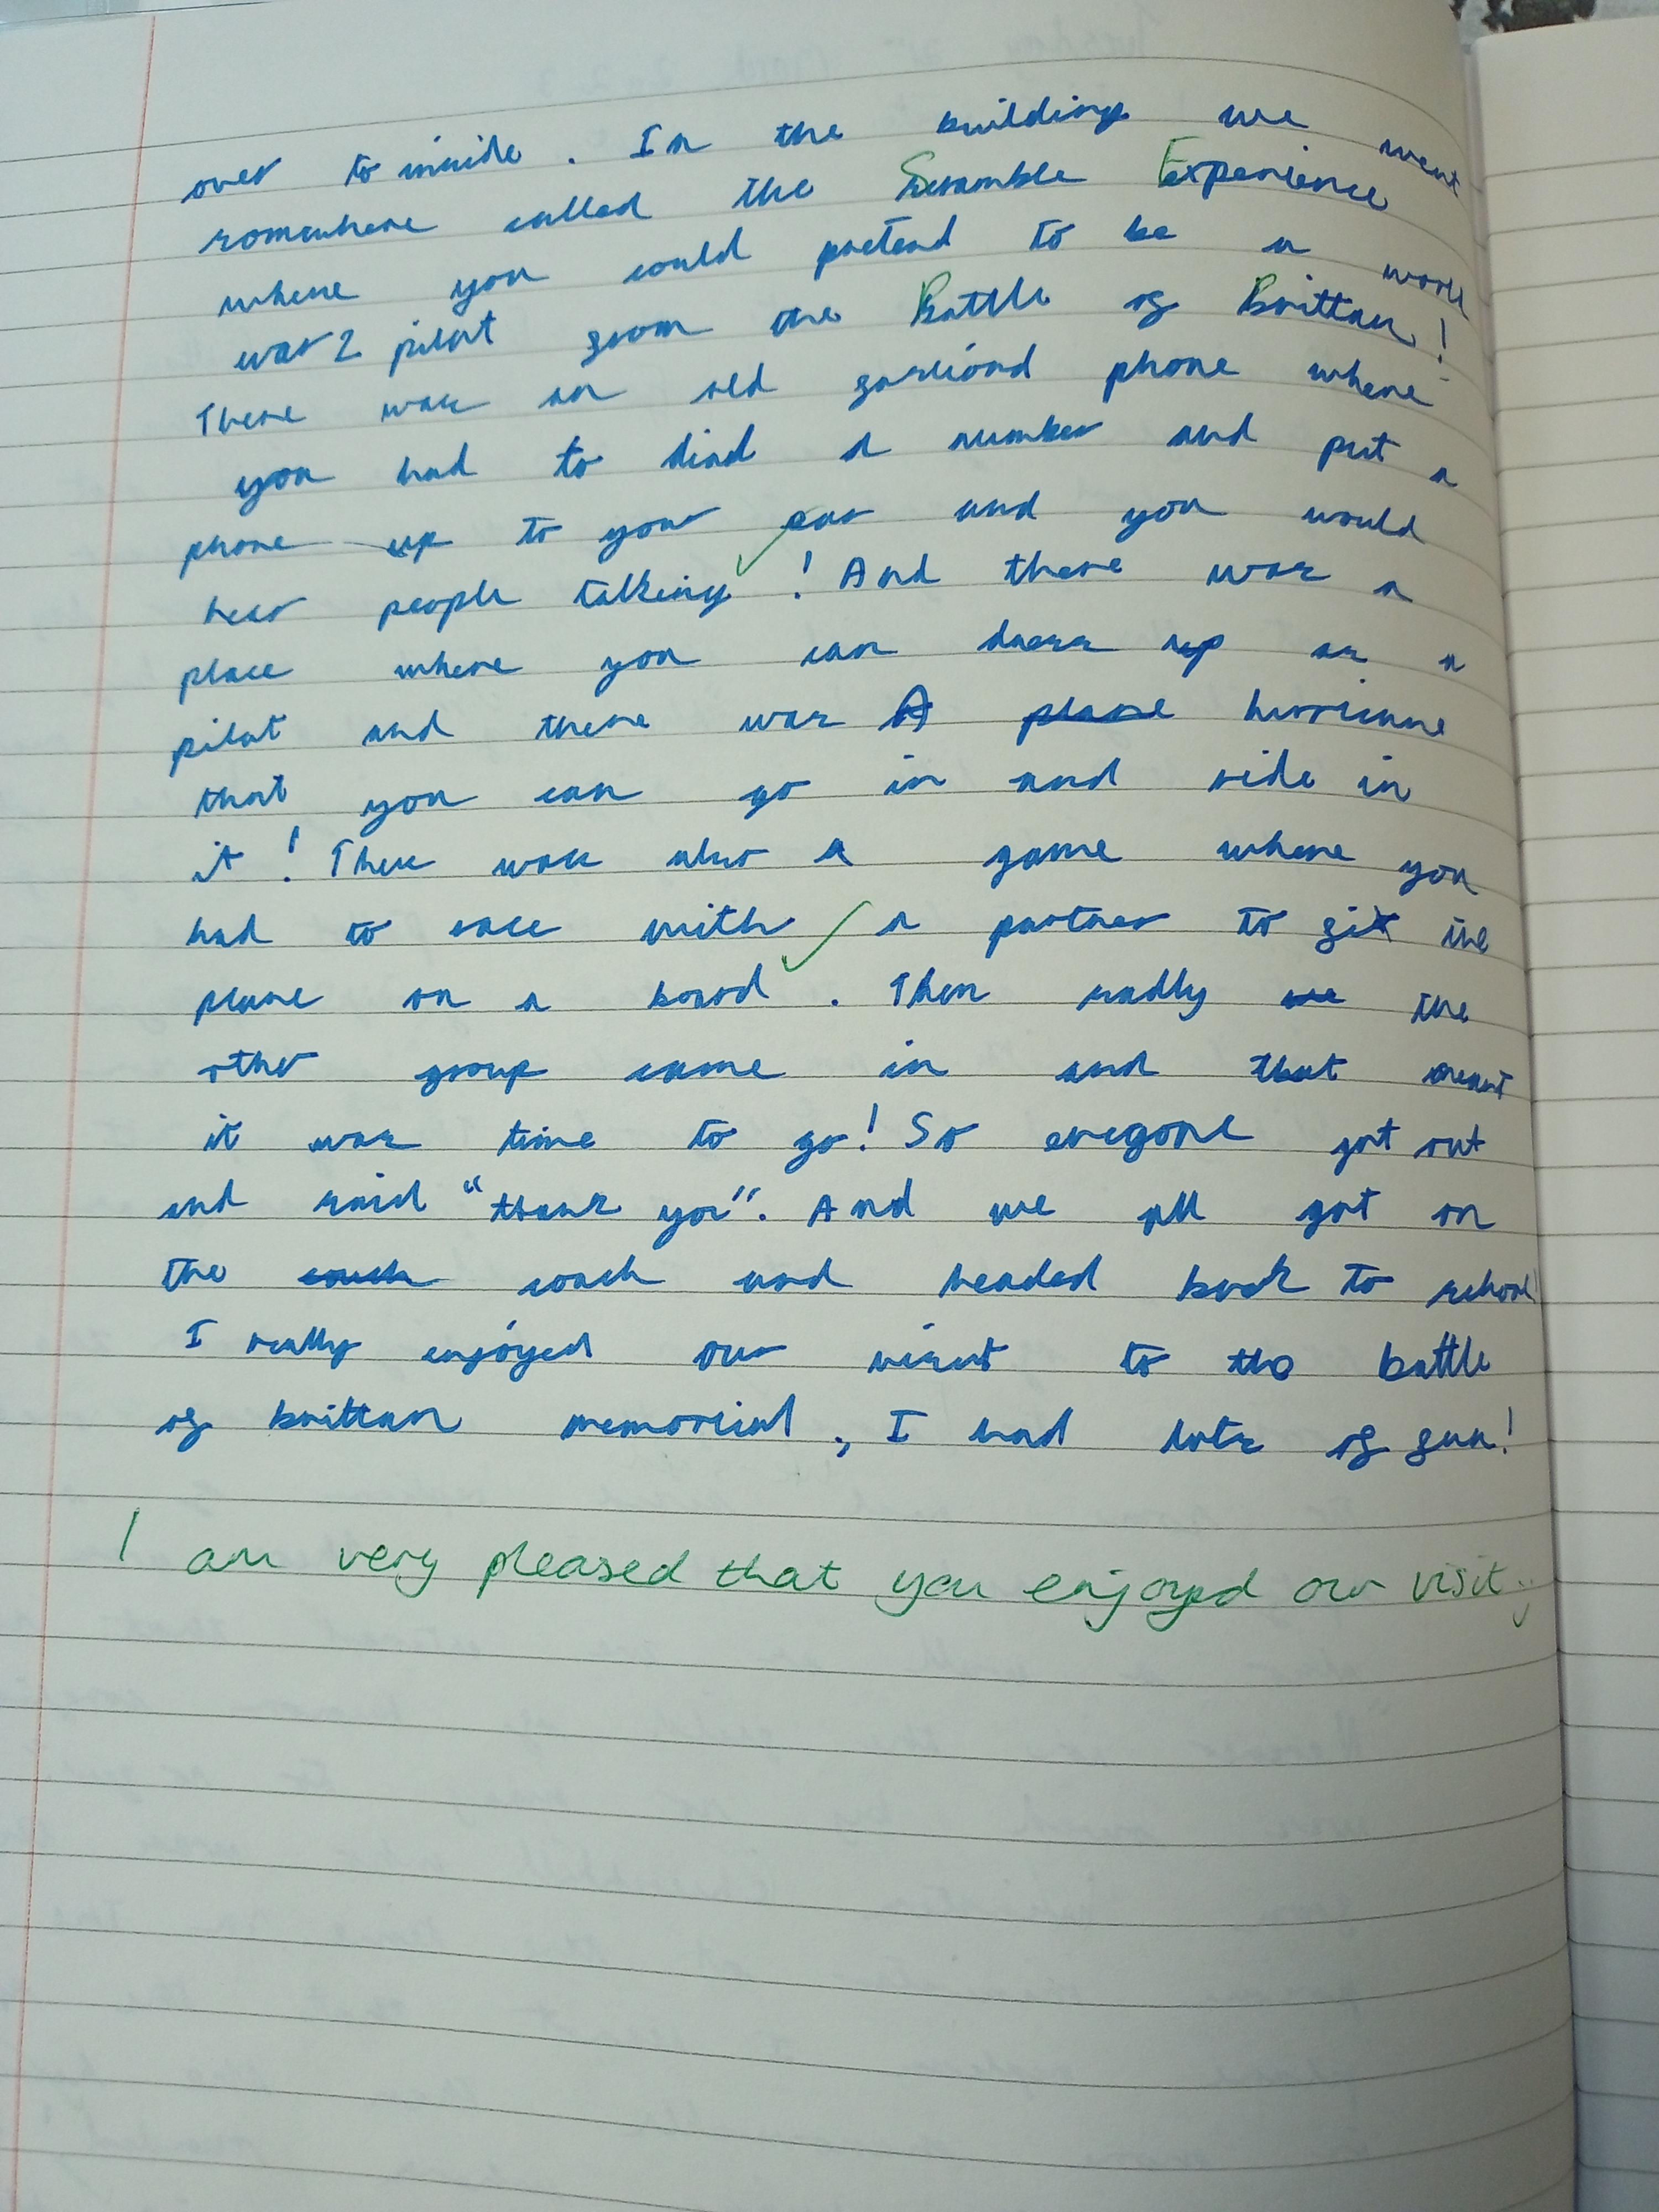 over to inside. In the building we went
somewhere called the Scramble Experience
where you could pretend to be a world
war 2 pilot from the Battle of Brittan!
There was an old fashiond phone where
you had to diad a number and put a
phone up to your ear and you would
hear people talking! And there was a
place where you can dress up as a
pilot and there was A plane hurricane
that you can go in and ride in
it! There was also a game where you
had to race with a partner to fit the
plane on a borod. Then sadly we the
other group came in and that meant
it was time to go! So everyone got out
and said "thank you". And we all got on
the couch coach and headed back to school
I really enjoyed our visit to the battle
of brittan memorial, I had lots of fun!
I am very pleased that you enjoyed our visit.